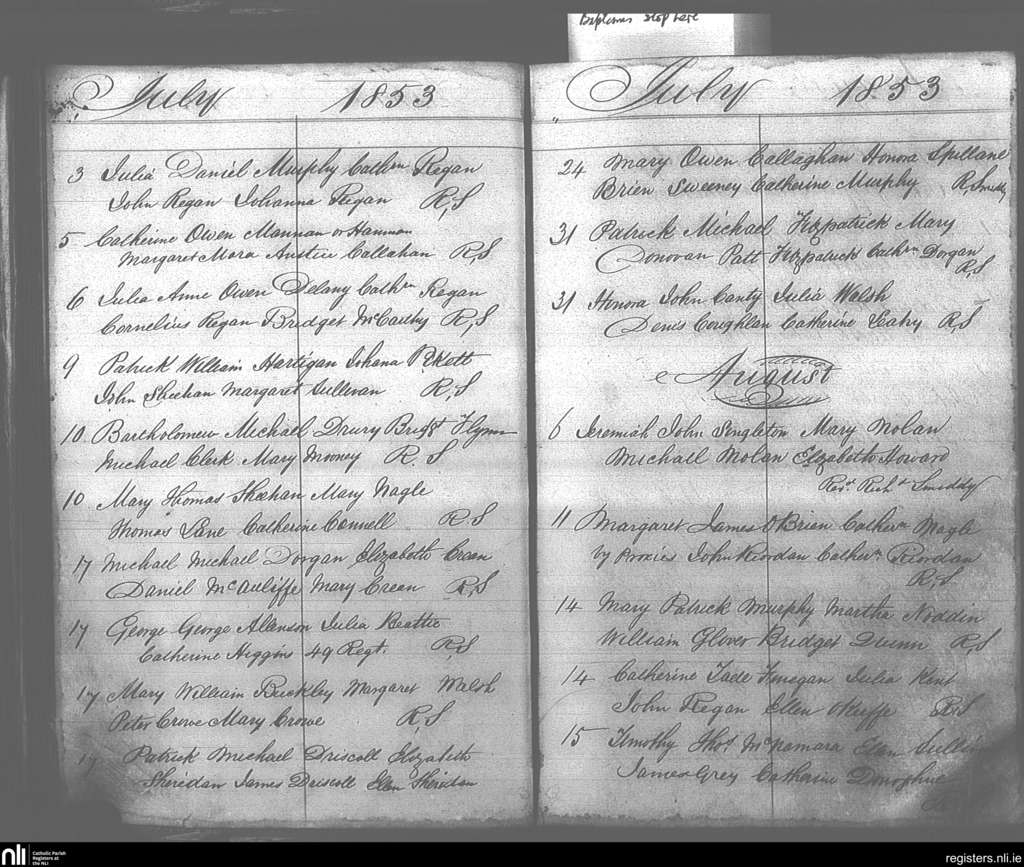 Baptisms stop here
July 1853
3 Julia Daniel Murphy Cathn Regan
John Regan Johanna Regan R,S
5 Catherine Owen Mannan or Hannan
Margaret Mora Austin Callahan R,S
6 Julia Anne Owen Delany Cathn Regan
Cornelius Regan Bridget McCarthy R,S
9 Patrick William Hartigan Johana
John Sheehan Margaret Sullivan R,S
10 Bartholomew Michael Drury Bridgt Flynn
Michael Clerk Mary Mooney R. S
10 Mary Thomas Sheehan Mary Nagle
Thomas Lane Catherine Connell R.S
17 Michael Michael Dorgan Elizabeth Crean
Daniel McAuliffe Mary Crean R,S
17 George George Alanson Julia Beattie
Catherine Higgins 49 Regt. R,S
17 Mary William Buckley Margaret Walsh
Peter Crowe Mary Crowe R,S
17 Patrick Michael Driscoll Elizabeth
Sheridan James Driscoll Ellen Sheridan
July 1853
24 Mary Owen Callaghan Honora Spillane
Brien Sweeney Catherine Murphy R,Smiddy
31 Patrick Michael Fitzpatrick Mary
Donovan Patt Fitzpatrick Cathn Dorgan
R,S
31 Honora John Canty Julia Walsh
Denis Coughlan Catherine Leahy R,S
August
6 Jeremiah John Singleton Mary Nolan
Michael Nolan Elizabeth Howard
Revd. Richd Smiddy
11 Margaret James O'Brien Cathern Nagle
by Proxies John Riordan Cathern Riordan
R,S
14 Mary Patrick Murphy Martha Noddin
William Glover Bridget Quinn R,S
14 Catherine Tade Finegan Julia Kent
John Regan Ellen OKeeffe R.S
15 Timothy Thos McNamara Ellen
James Grey Catherine Donoghue
nli
Catholic Parish
Registers at
the NLI
registers.nli.ie